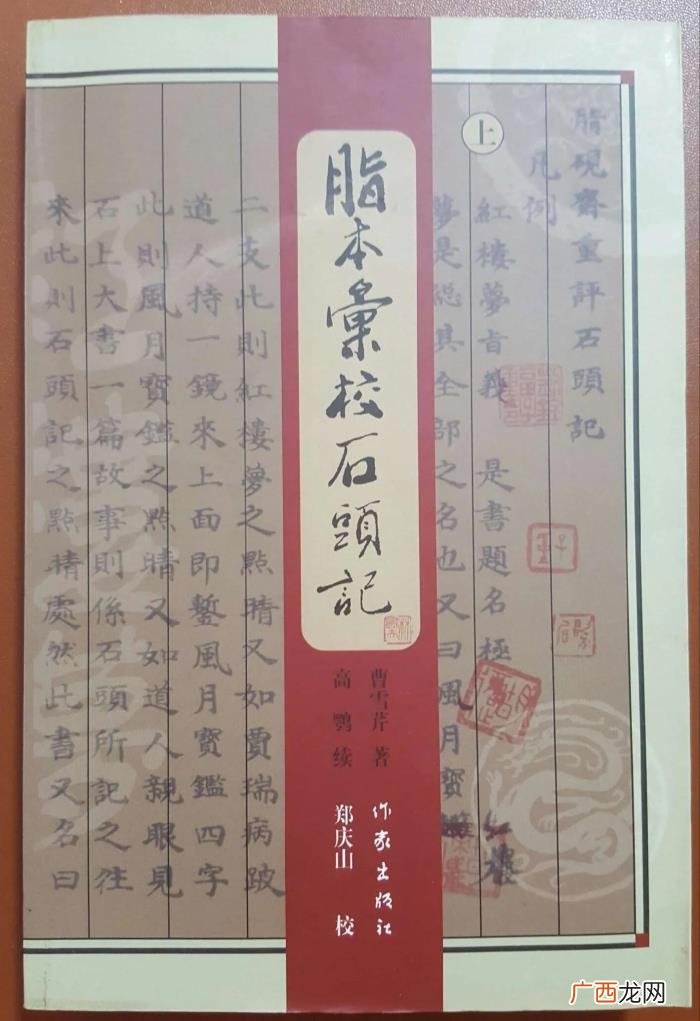 脂硯齋重評石頭記
凡例
紅樓夢旨義 是書題名極
紅樓
夢是總其全部之名也又曰風月寳
上
脂本彙校石頭記
曹雪芹 著
高鹗 续
作家出版社
郑庆山 校
二支此則紅樓夢之點晴又如賈瑞病跛
道人持一鏡來上面即鏨風月寳鑑四字
此則風月寳鑑之點晴又如道人親眼見
石上大書一篇故事則係石頭所記之往
來此則石頭記之點晴處然此書又名曰
广西龙网